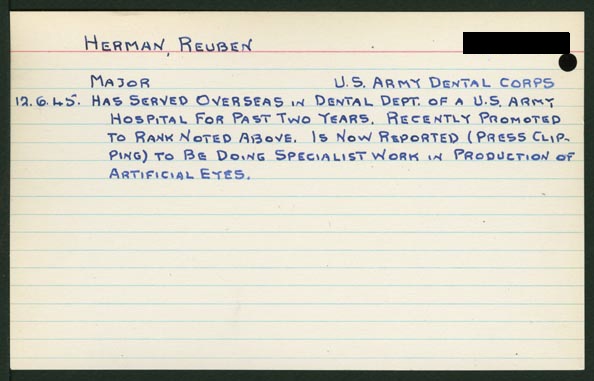 HERMAN, REUBEN
MAJOR U.S. ARMY DENTAL CORPS
12.6.45. HAS SERVED OVERSEAS IN DENTAL DEPT. OF A U.S. ARMY
HOSPITAL FOR PAST TWO YEARS. RECENTLY PROMOTED
TO RANK NOTED ABOVE. IS NOW REPORTED (PRESS CLIP-
PING) TO BE DOING SPECIALIST WORK IN PRODUCTION OF
ARTIFICIAL EYES.